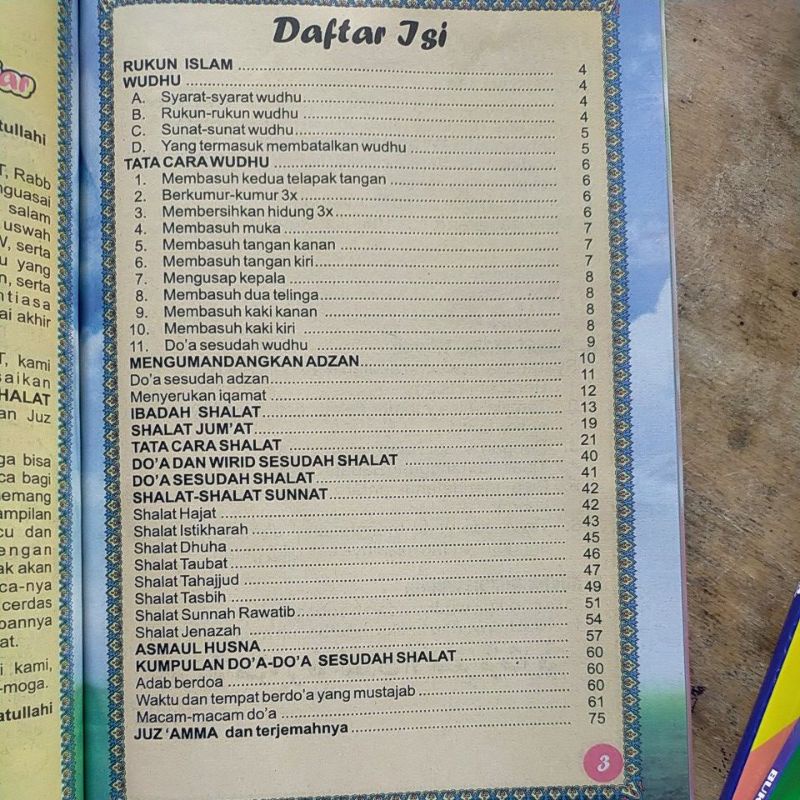 tullahi
T, Rabb
salam
uswah
serta
yang
serta
akhir
kami
Juz
bisa
bagi
dan
akan
cerdas
kami,
Daftar Isi
RUKUN ISLAM 4
WUDHU 4
A. Syarat-syarat wudhu 4
B. Rukun-rukun wudhu 4
C. Sunat-sunat wudhu 5
D. Yang termasuk membatalkan wudhu 5
TATA CARA WUDHU 6
1. Membasuh kedua telapak tangan 6
2. Berkumur-kumur 3x 6
3. Membersihkan hidung 3x 6
4. Membasuh muka 7
5. Membasuh tangan kanan 7
6. Membasuh tangan kiri 7
7. Mengusap kepala 8
8. Membasuh dua telinga 8
9. Membasuh kaki kanan 8
10. Membasuh kaki kiri 8
11. Do'a sesudah wudhu 9
MENGUMANDANGKAN ADZAN 10
Do'a sesudah adzan 11
Menyerukan iqamat 12
IBADAH SHALAT 13
SHALAT JUM'AT 19
TATA CARA SHALAT 21
DO'A DAN WIRID SESUDAH SHALAT 40
DO'A SESUDAH SHALAT 41
SHALAT-SHALAT SUNNAT 42
Shalat Hajat 42
Shalat Istikharah 43
Shalat Dhuha 45
Shalat Taubat 46
Shalat Tahajjud 47
Shalat Tasbih 49
Shalat Sunnah Rawatib 51
Shalat Jenazah 54
ASMAUL HUSNA 57
KUMPULAN DO'A-DO'A SESUDAH SHALAT 60
Adab berdoa 60
Waktu dan tempat berdo'a yang mustajab 60
Macam-macam do'a 61
JUZ 'AMMA dan terjemahnya 75
3